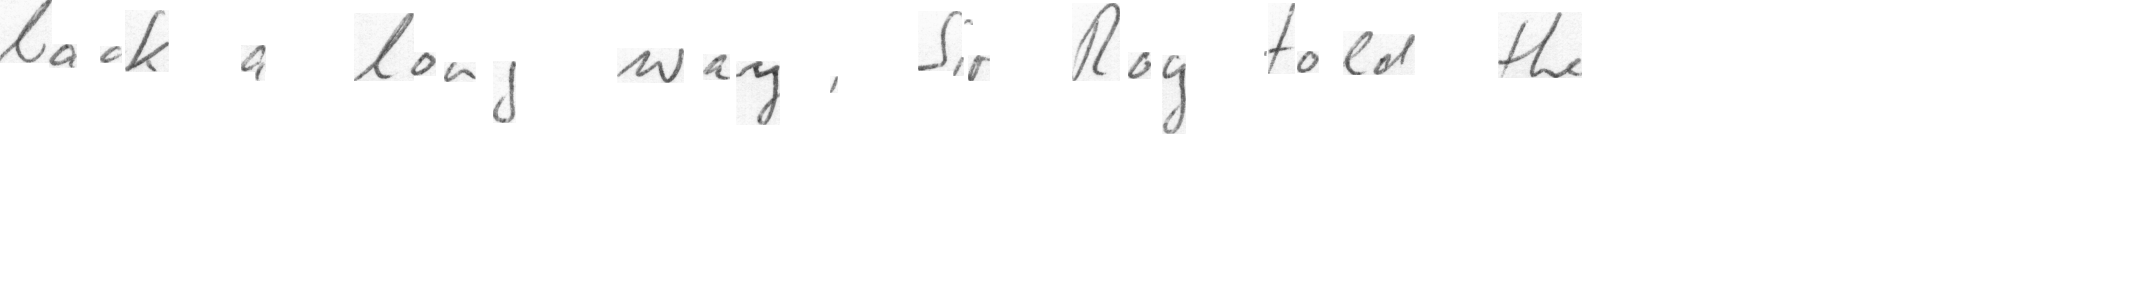 back a long way, Sir Roy told the